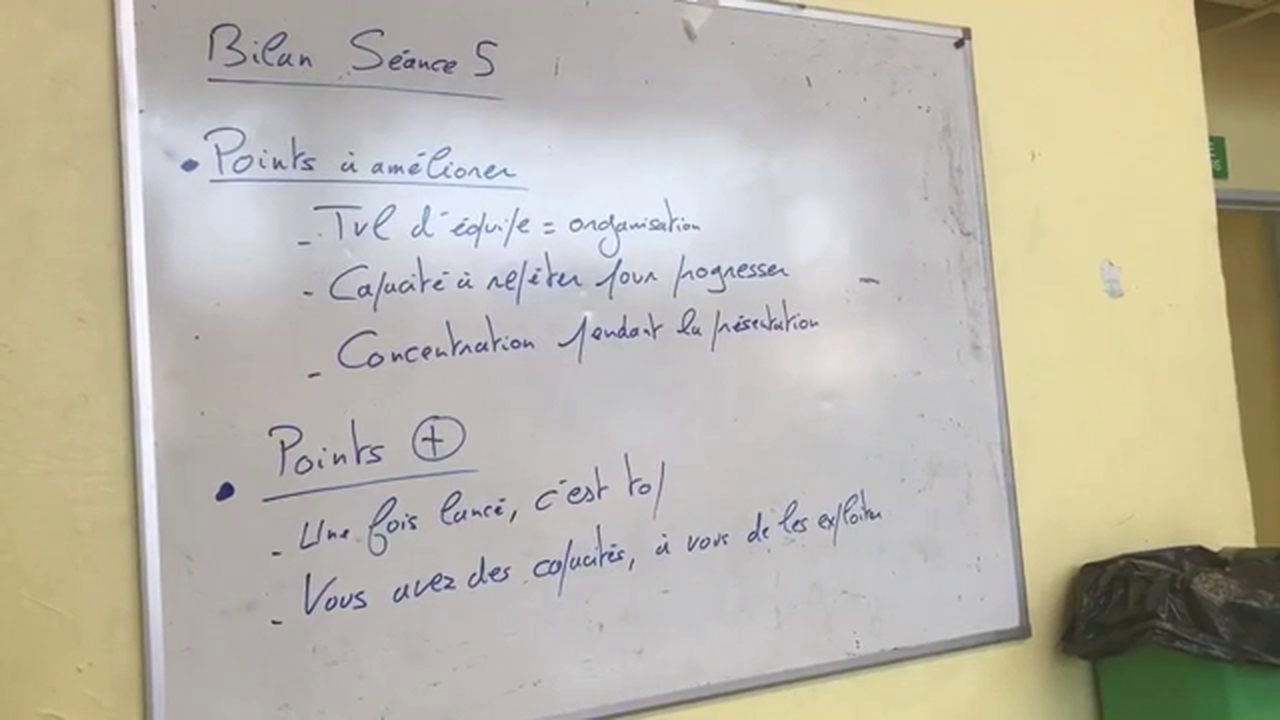 Bilan Séance 5
• Points à améliorer
- Tvl d'équipe = organisation
- Capacité à répéter pour progresser
- Concentration pendant la présentation
• Points +
- Une fois lancé, c'est top
- Vous avez des capacités, à vous de les exploiter